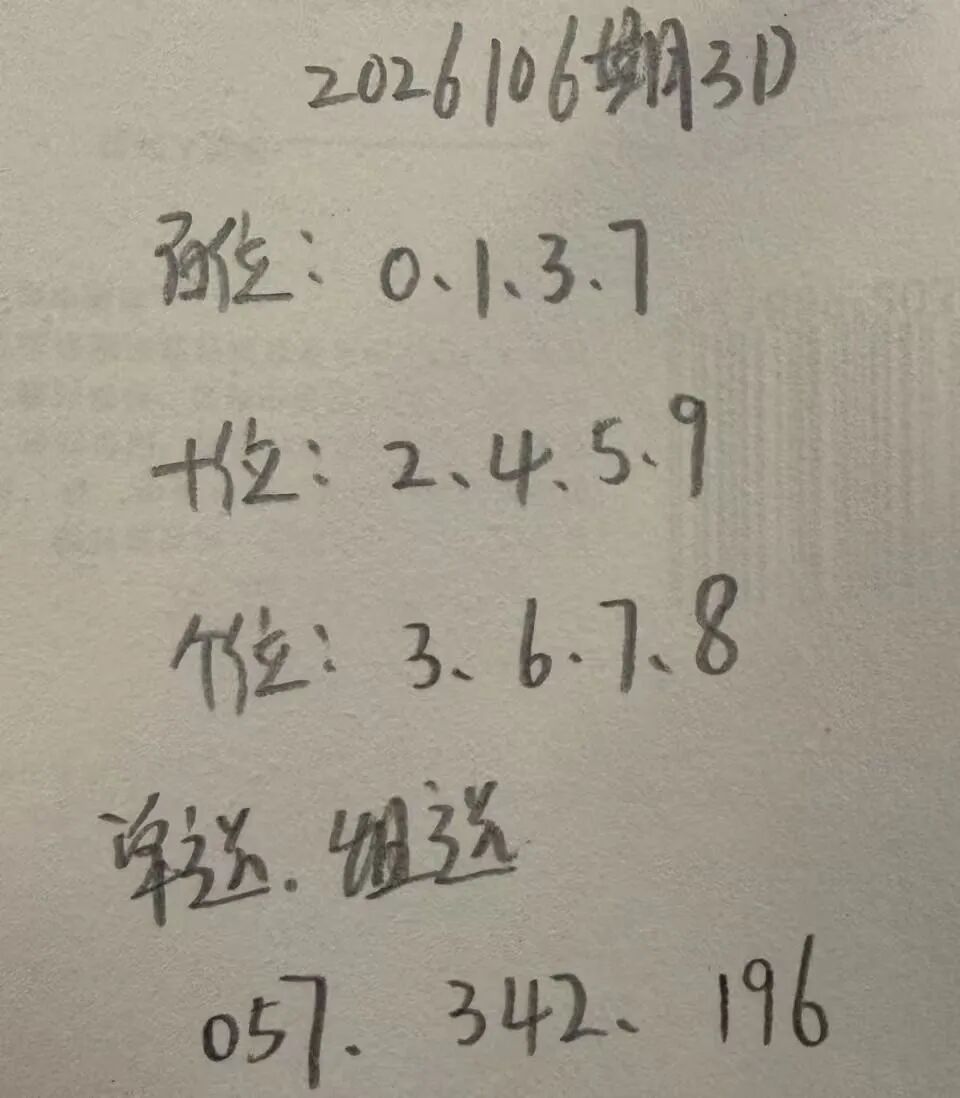 2026106期3D
百位：0、1、3、7
十位：2、4、5、9
个位：3、6、7、8
单选、组选
057、342、196